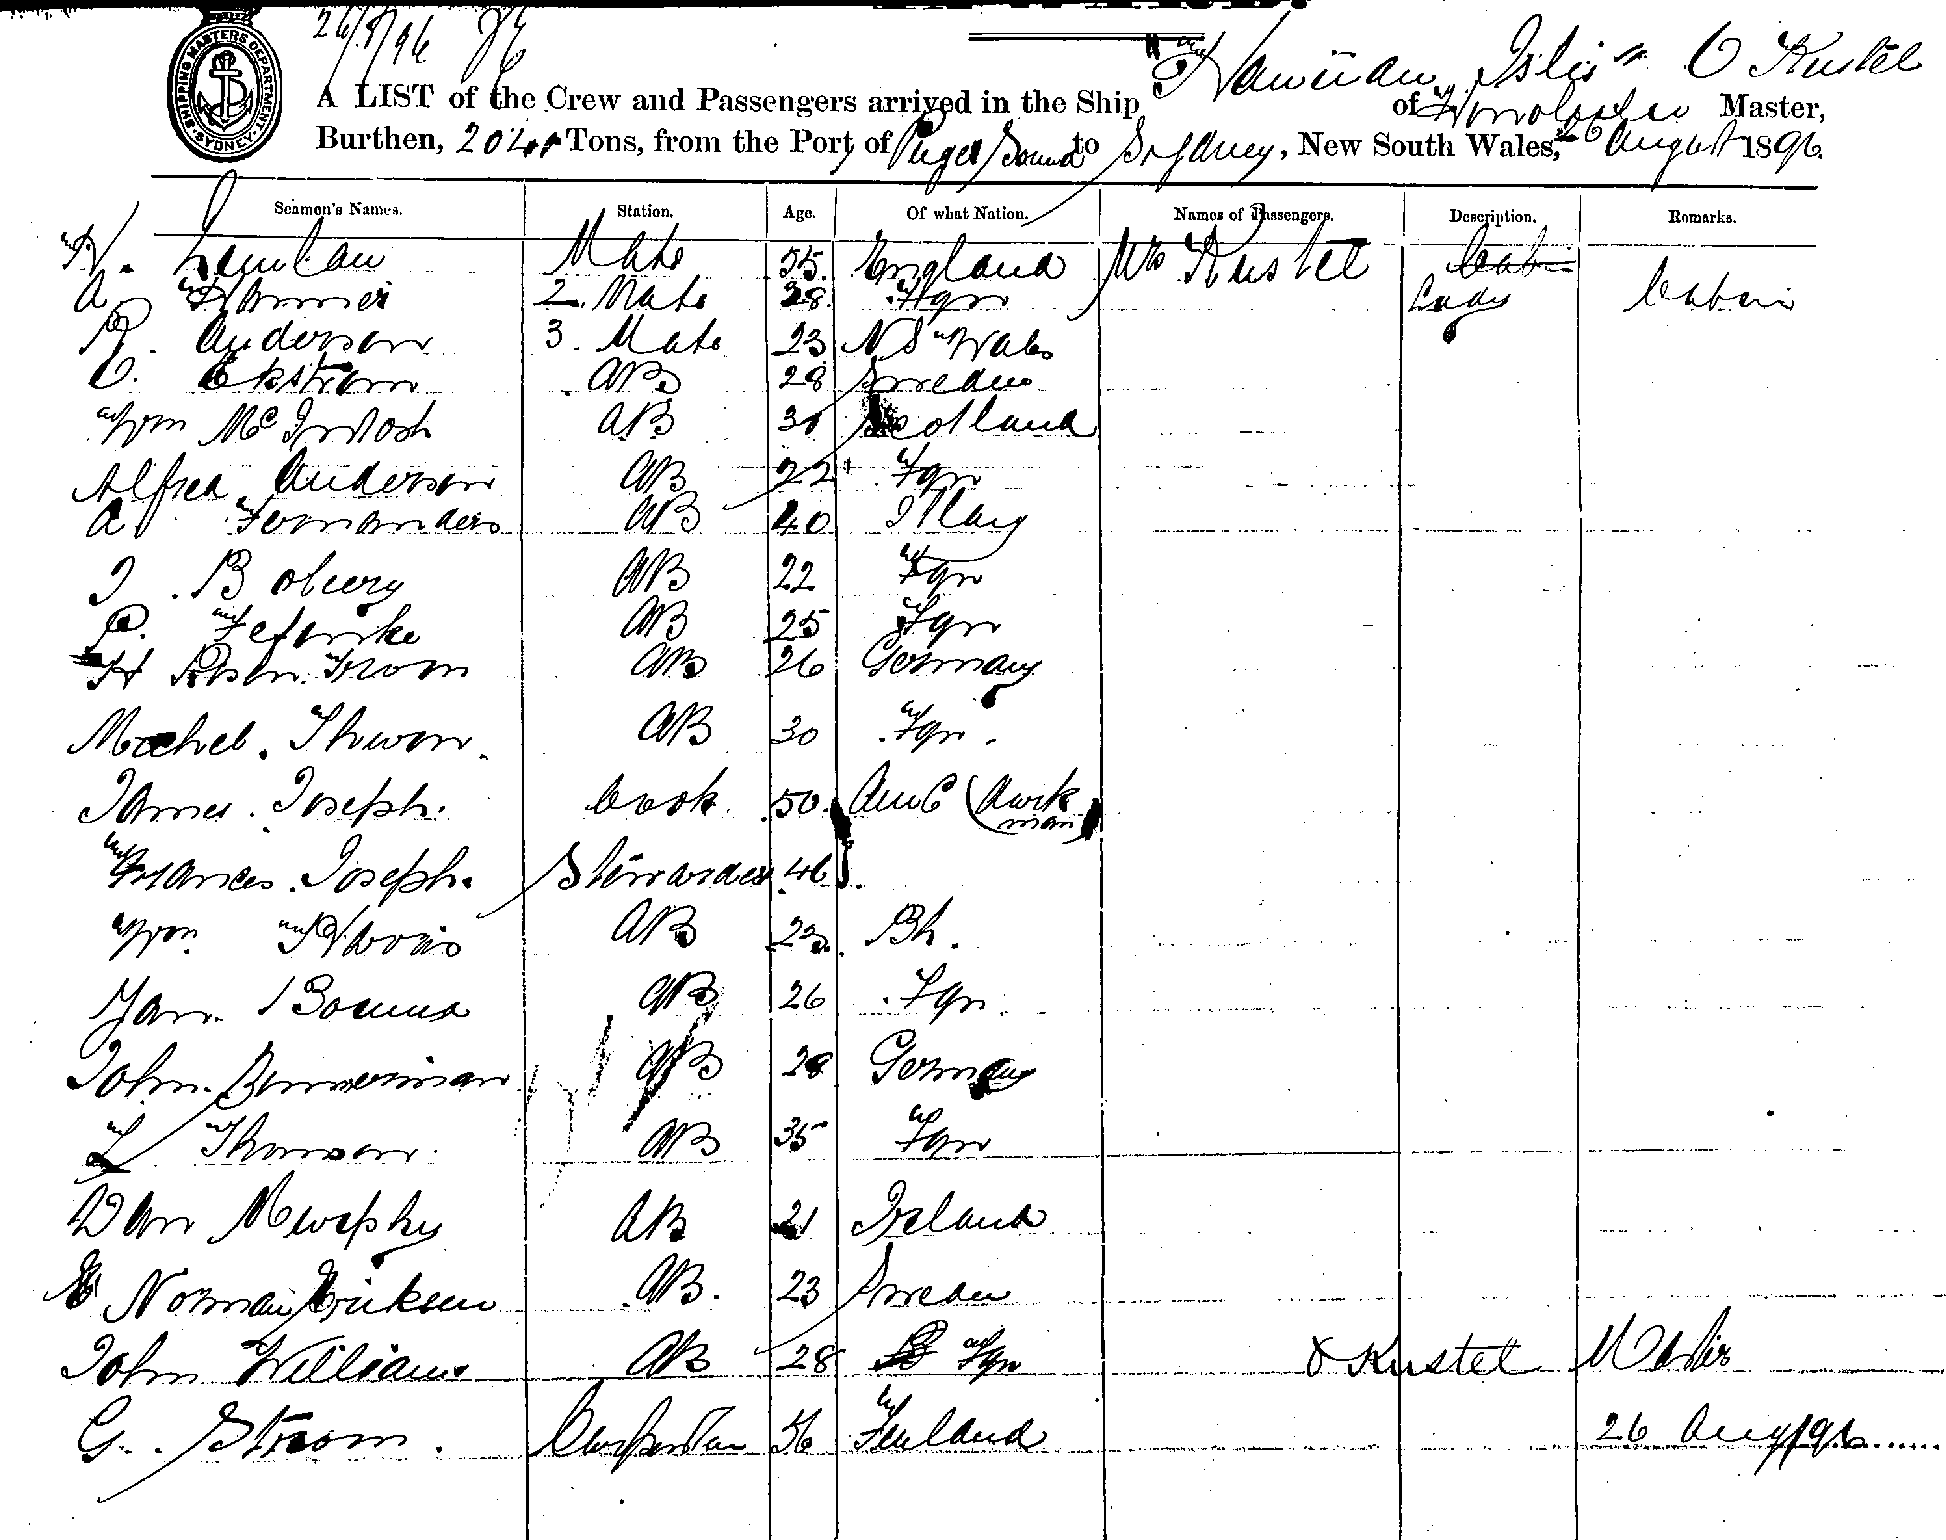 26/8/96
SHIPPING MASTERS DEPARTMENT SYDNEY
"Hawiian Isles" C Kustel
A LIST of the Crew and Passengers arrived in the Ship of Honolulu Master,
Burthen, Tons, from the Port of Puget Sound to Sydney, New South Wales, 26 August 1896
Seamen's Names. Station. Age. Of what Nation. Names of Passengers. Description. Remarks.
Mate 35 England Mrs Kustel
A 2. Mate 28 Fgn Lady Cabin
R. Anderson 3. Mate 23 N S Wales
C. Ekstrom AB 28 Sweden
Wm McIntosh AB 30 Scotland
Alfred Anderson AB 22 Fgn
A Fernandes AB 40 Italy
AB 22 Fgn
AB 25 Fgn
H AB 26 Germany
AB 30 Fgn.
James Joseph. Cook 50
Frances Joseph. Stewardess 46
Wm Harris AB 23 Bh.
Jan Bouma AB 26 Fgn.
John Zimmerman AB 28 Germany
L Thomson AB 35 Fgn
Dan Murphy AB 21 Ireland
Norman Eriksen AB. 23 Sweden
John Williams AB 28 Fgn C Kustel Master
G. Strom. Carpenter 36 Finland 26 Aug/96